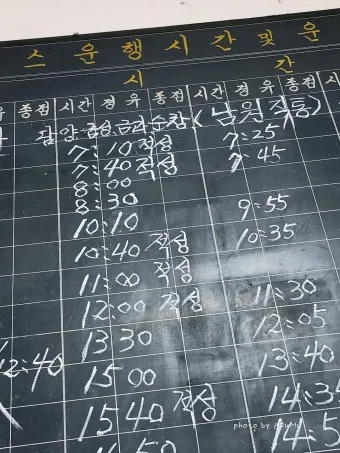 스 운행 시간 및 운
시 간
종점 시간 경유 종점 시간 경유 종점
담양·금성·금과·순창 (남원직통)
7:10 적성 7:25
7:40 적성 7:45
8:00
8:30
10:10 9:55
10:40 적성 10:35
11:00 적성
12:00 적성 11:30
13 30 12:05
12:40 15 00 13:40
15 40 적성 14:3
14:5
photo by